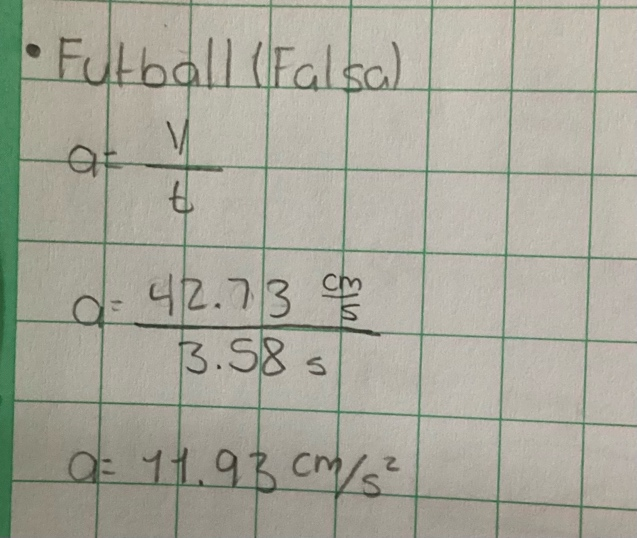 • Futball (Falsa)
a = V
t
a = 42.73 cm
s
3.58 s
a = 11.93 cm/s²